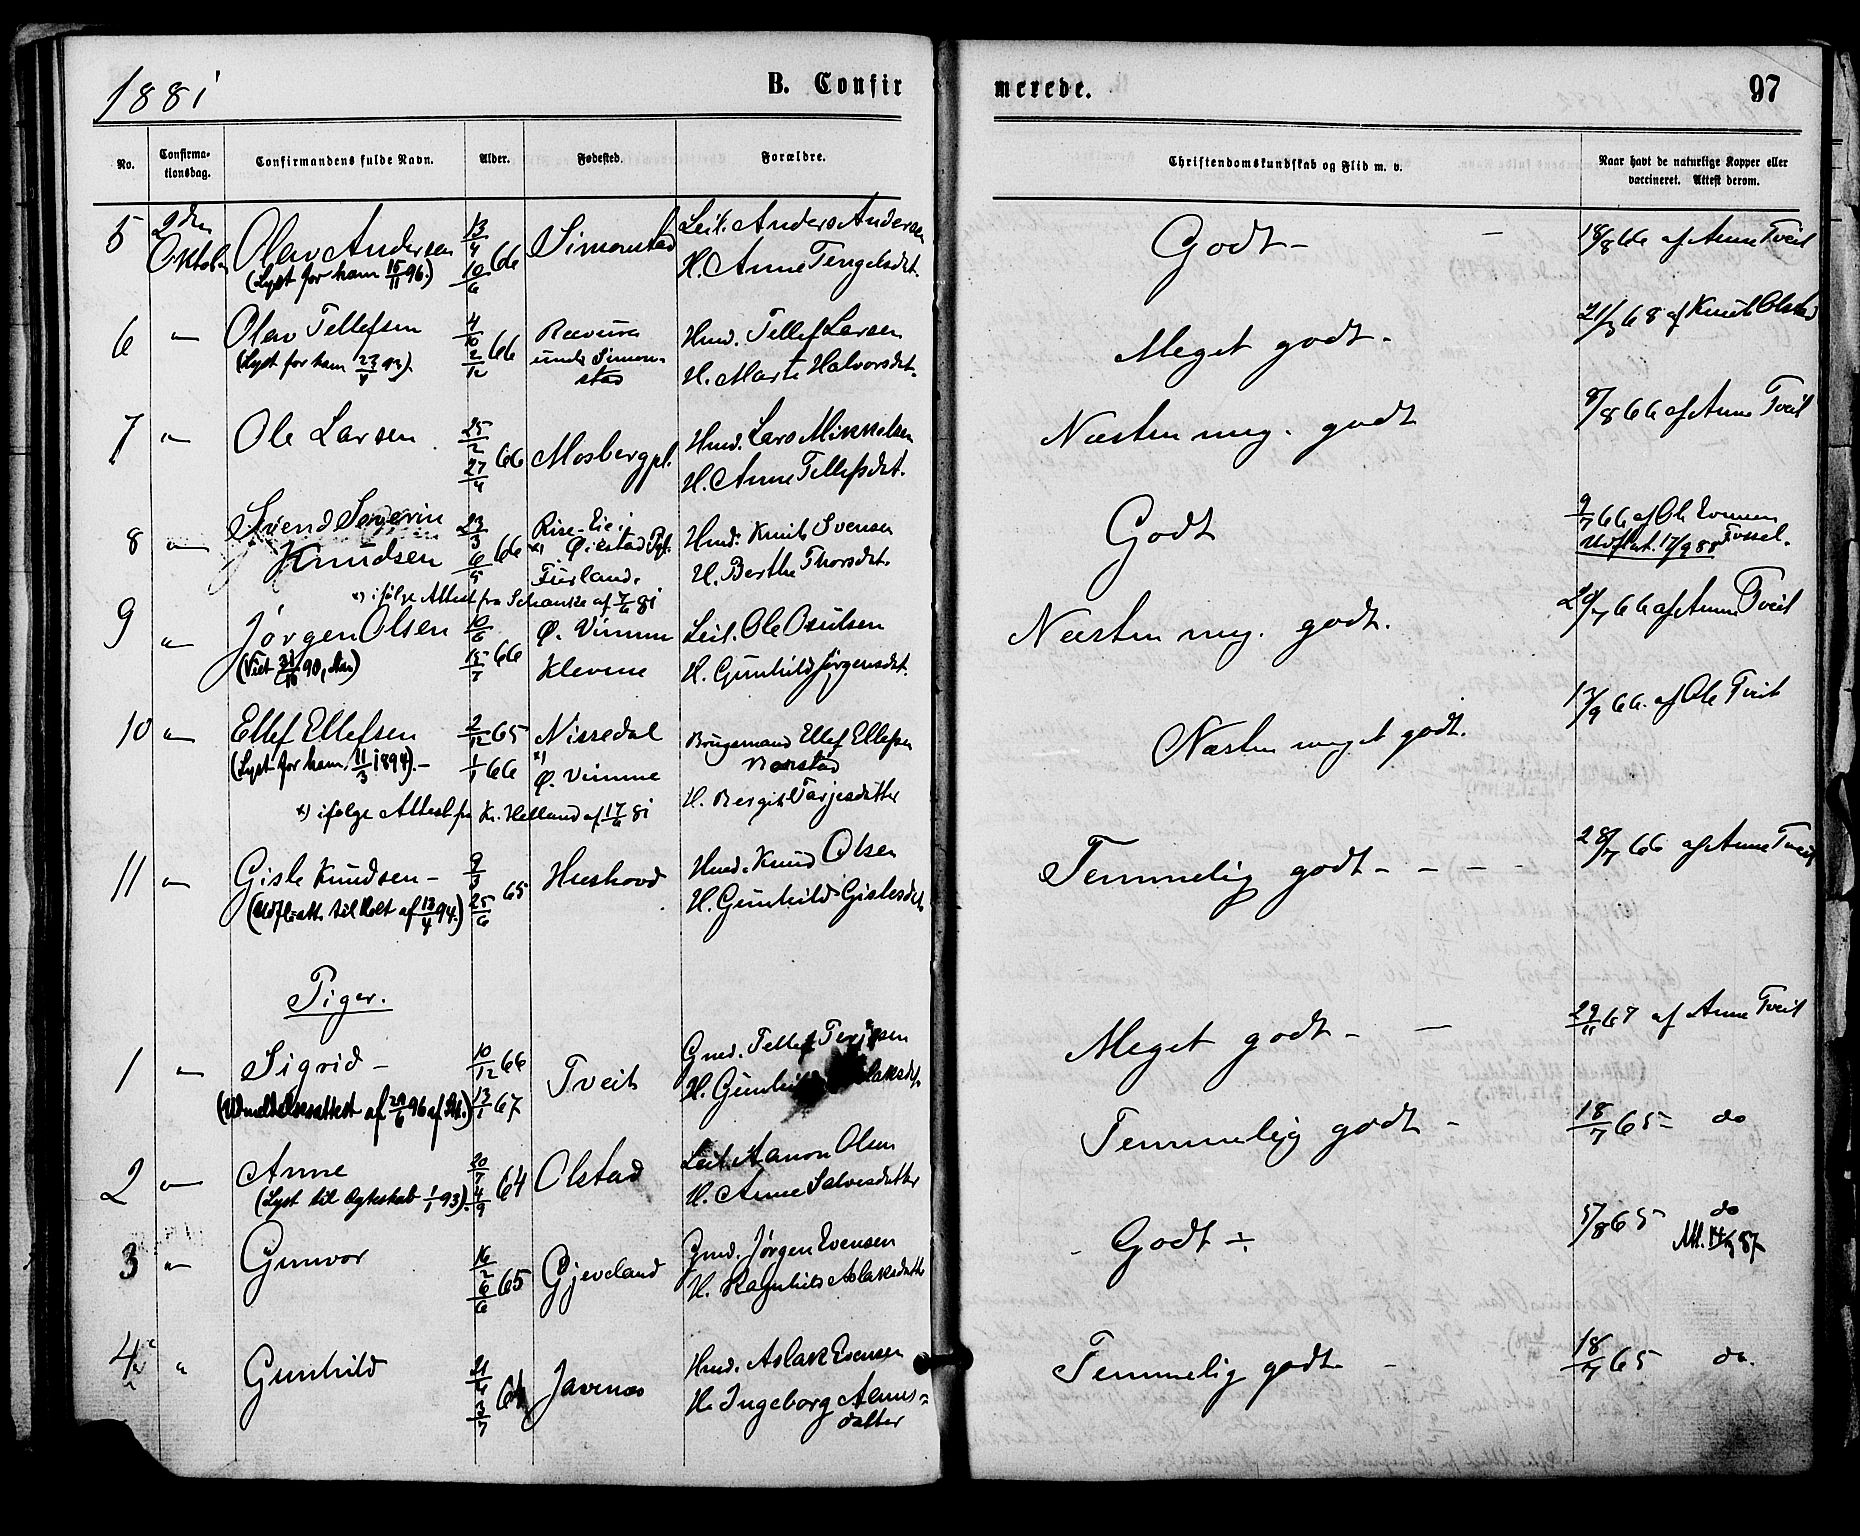 1881
B. Confirmerede.
97
No.
Confirmationsdag.
Confirmandens fulde Navn.
Alder.
Fødested.
Forældre.
Christendomskundskab og Flid m. v.
Naar havt de naturlige Kopper eller vaccineret. Attest derom.
5 2den Oktober Olav Andersen 13/4 10/6 66 Simonstad Leil. Anders Andersen
(Lyst for ham 15/11 96.) H. Anne Tengelsdat.
Godt - 18/8 66 af Anne Tveit
6 " Olav Tellefsen 4/10 2/12 66 Rævura under Simonstad Hmd. Tellef Larsen
(Lyst for ham 23/4 93). H. Marte Halvorsdat.
Meget godt - 21/3 68 af Knut Olstad
7 " Ole Larsen 25/2 27/4 66 Mosbergpl. Hmd. Lars Mikkelsen
H. Anne Tellefsdat.
Næsten meg. godt 8/8 66 af Anne Tveit
8 " Svend Severin Knudsen 23/3 6/5 66 Rise-Eie i x) Øiestad Pgl. Furland. Hmd. Knut Svensen
H. Berthe Thorsdat.
x) ifølge Attest fra Schanke af 7/6 81
Godt 9/7 66 af Ole Evensen Fossel.
Udflat. 17/9 88
9 " Jørgen Olsen 10/6 15/7 66 Ø. Vimme Klevene Leil. Ole Osulsen
(Viet 31/10 90, ) H. Gunhild Jørgensdat.
Næsten meg. godt. 20/7 66 af Anne Tveit
10 " Ellef Ellefsen 2/12 65 1/1 66 Nissedal x) Ø. Vimme Brugsmand Ellef Ellefsen
(Lyst for ham 11/3 1894). - H. Bergit Tarjesdatter
x) ifølge Attest fra Kr. Helland af 17/6 81
Næsten meget godt. 17/9 66. af Ole Tveit
11 " Gisle Knudsen - 9/3 25/6 65 Hushovd Hmd. Knud Olsen
(Udflatt. til Holt af 13/4 94.) H. Gunhild Gislesdat.
Temmelig godt - - - - 28/7 66 af Anne Tveit
Piger.
1 " Sigrid - 10/12 66 13/1 67 Tveit Gmd. Tellef Terjesen
(Udmeldelsesattest af 29/6 96 af ) H. Gunhild Aslaksdat.
Meget godt - - 29/11 67 af Anne Tveit
2 " Anne 20/7 4/9 64 Olstad Leil. Aanon Olsen
(Lyst til Ægteskab 1/1 93). H. Anne Salvesdatter
Temmelig godt - 18/7 65 - do
3 " Gunvor 16/2 6/6 65 Gjeveland Gmd. Jørgen Evensen
H. Ragnhild Aslaksdatter
Godt ÷ 5/8 65 do
Att. 87
4 " Gunhild 21/4 3/7 64 Javnes Hmd. Aslak Evensen
H. Ingeborg Aanonsdatter
Temmelig godt - 18/7 65 do.